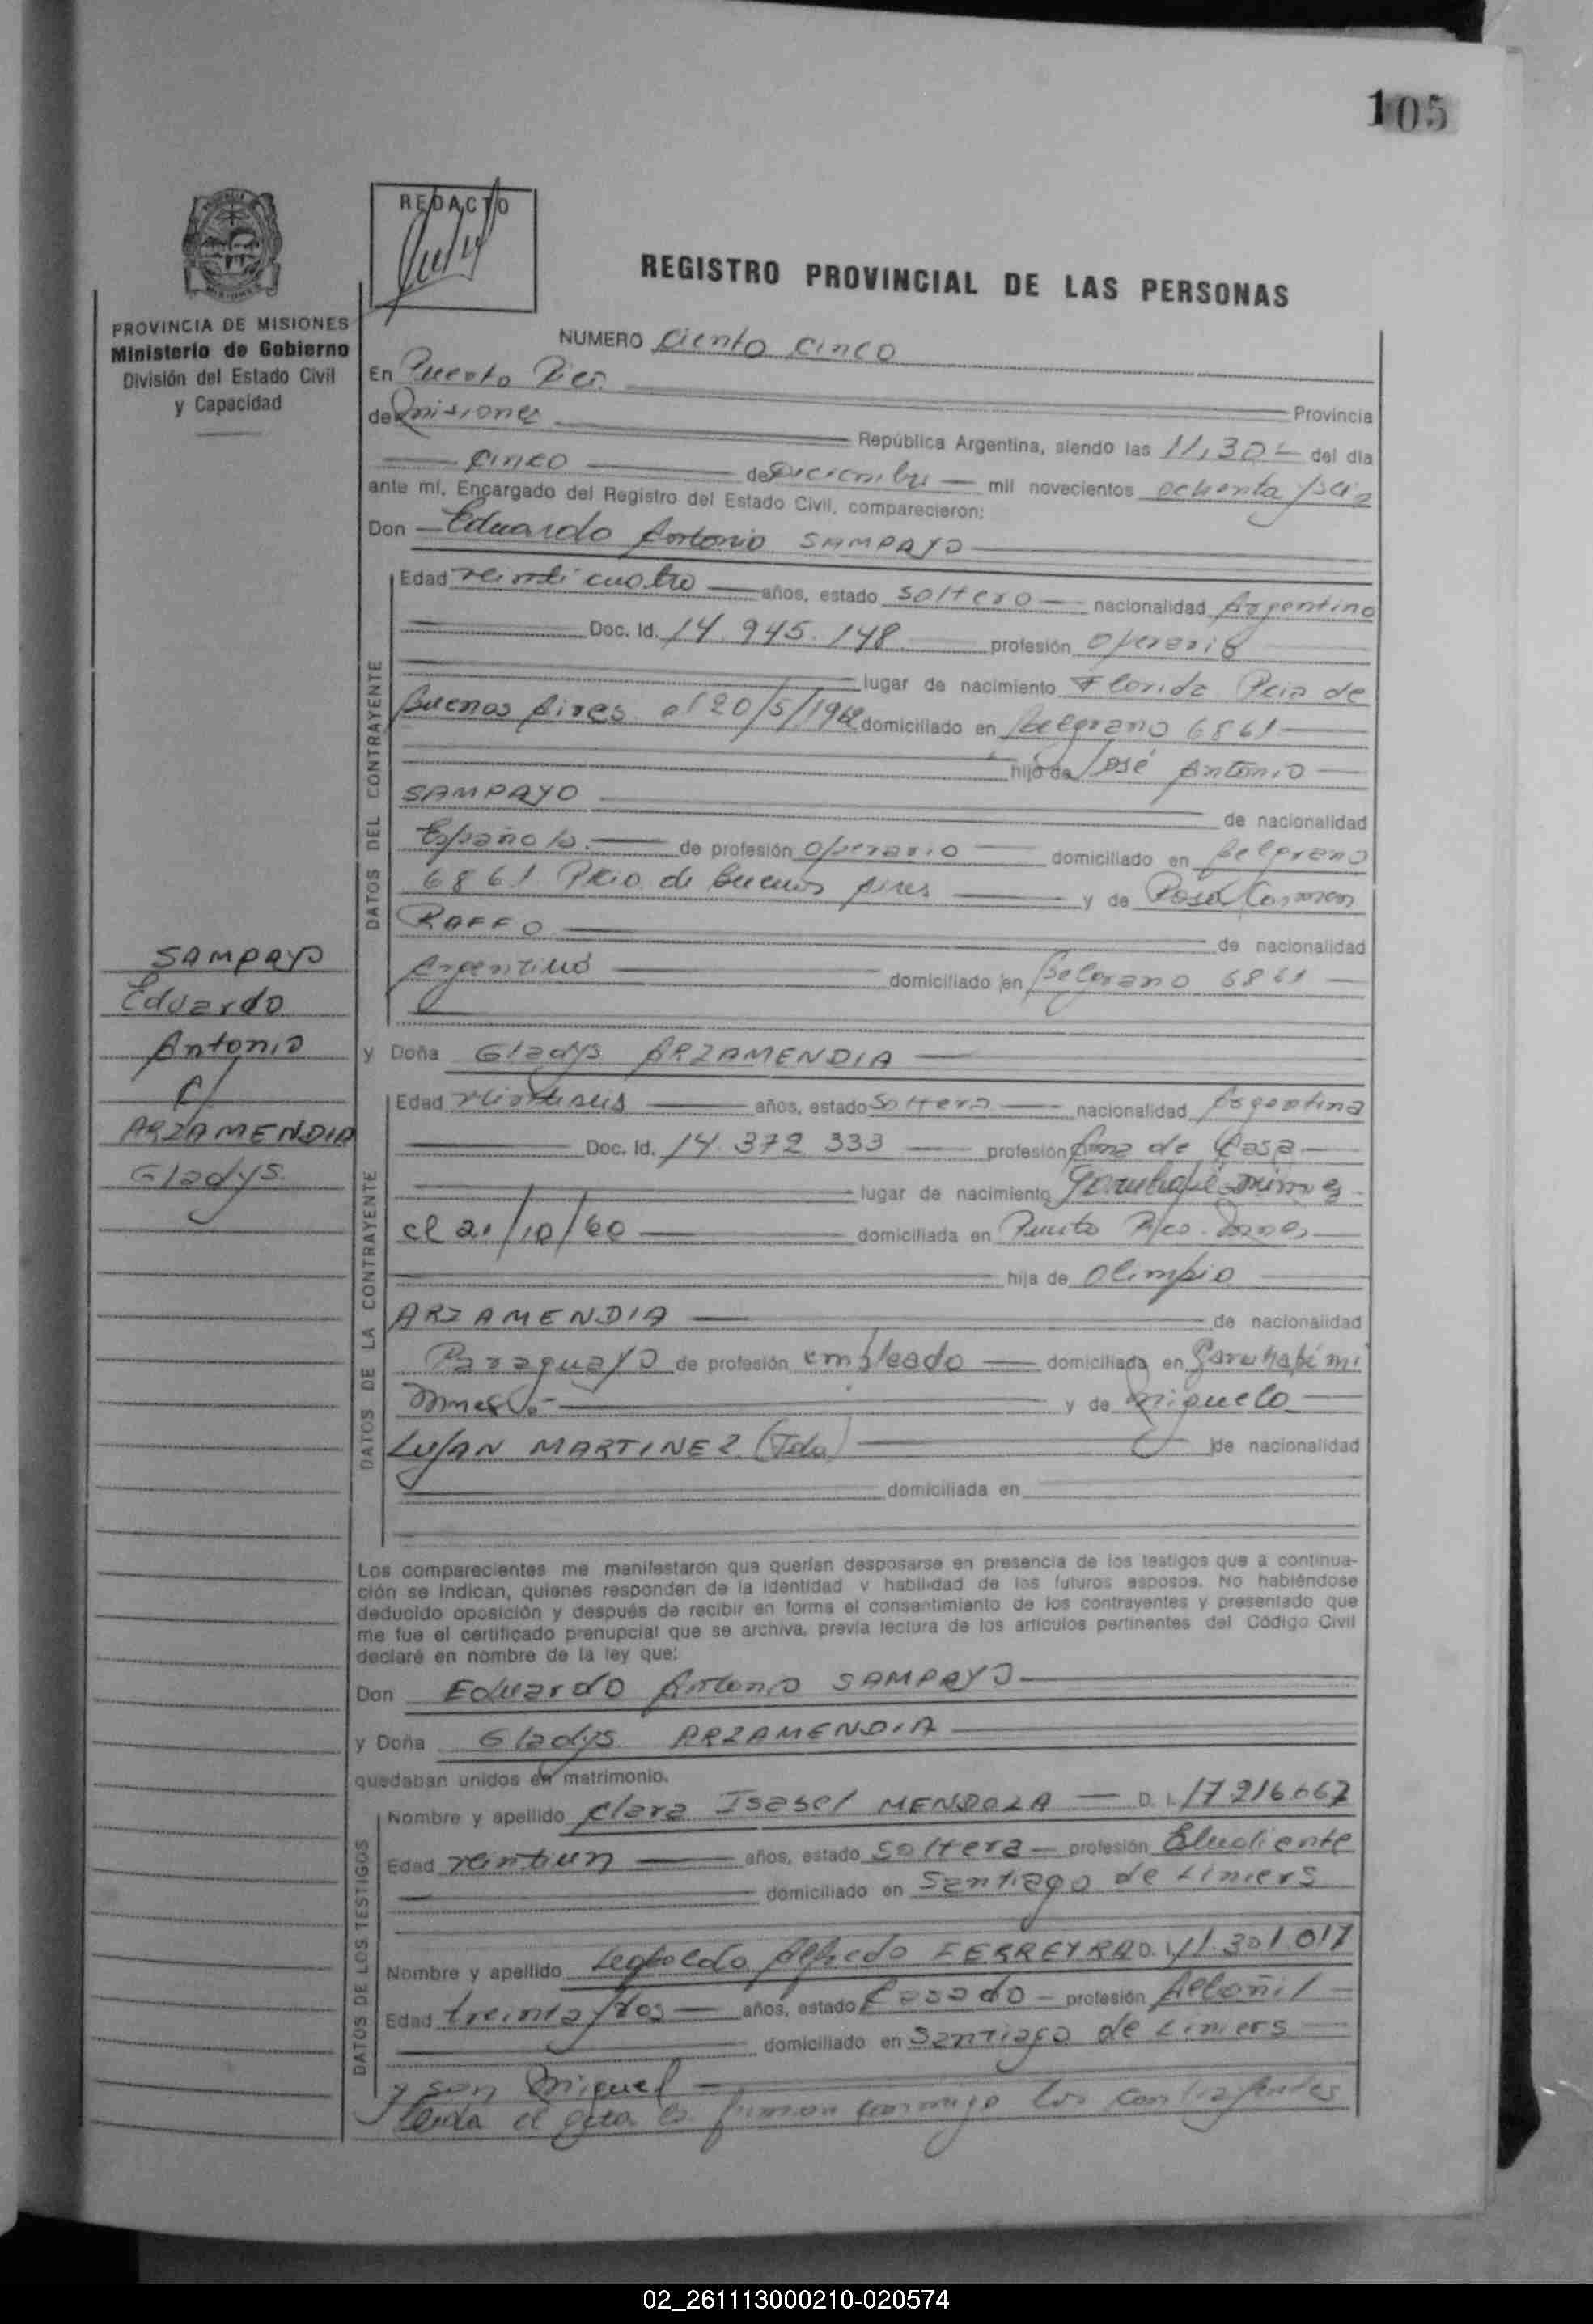 105
REDACTO
REGISTRO PROVINCIAL DE LAS PERSONAS
PROVINCIA DE MISIONES
Ministerio de Gobierno
División del Estado Civil
y Capacidad
NUMERO Ciento Cinco
En Puerto Rico Provincia
de Misiones República Argentina, siendo las 11,30 del día
cinco de Diciembre mil novecientos ochenta y seis
ante mí, Encargado del Registro del Estado Civil, comparecieron:
Don Eduardo Antonio SAMPAYO
DATOS DEL CONTRAYENTE
Edad veinticuatro años, estado soltero nacionalidad Argentina
Doc. Id. 14.945.148 profesión Operario
lugar de nacimiento Florida Pcia de
Buenos Aires el 20/5/1962 domiciliado en Belgrano 6861
hijo de José Antonio
SAMPAYO de nacionalidad
Española de profesión Operario domiciliado en Belgrano
6861 Pcia de Buenos Aires y de Rosa Carmen
RAFFO de nacionalidad
Argentina domiciliado en Belgrano 6861
SAMPAYO
Eduardo
Antonio
c/
ARZAMENDIA
Gladys
y Doña Gladys ARZAMENDIA
DATOS DE LA CONTRAYENTE
Edad veintiseis años, estado Soltera nacionalidad Argentina
Doc. Id. 14.372 333 profesión Ama de Casa
lugar de nacimiento Garuhapé
el 21/10/60 domiciliada en Puerto Rico
hija de Olimpio
ARZAMENDIA de nacionalidad
Paraguayo de profesión empleado domiciliada en Garuhapé mí
y de Miguela
LUJAN MARTINEZ de nacionalidad
domiciliada en
Los comparecientes me manifestaron que querían desposarse en presencia de los testigos que a continua-
ción se indican, quienes responden de la identidad y habilidad de los futuros esposos. No habiéndose
deducido oposición y después de recibir en forma el consentimiento de los contrayentes y presentado que
me fue el certificado prenupcial que se archiva, previa lectura de los artículos pertinentes del Código Civil
declaré en nombre de la ley que:
Don Eduardo Antonio SAMPAYO
y Doña Gladys ARZAMENDIA
quedaban unidos en matrimonio.
DATOS DE LOS TESTIGOS
Nombre y apellido Clara Isabel MENDOZA D. I. 17216667
Edad veintiun años, estado Soltera profesión Estudiante
domiciliado en Santiago de Liniers
Nombre y apellido Leopoldo Alfredo FERREYRA D. I. 11.301.017
Edad treinta y dos años, estado Casado profesión Albañil
domiciliado en Santiago de Liniers
y son Miguel
Leida el acta la firman conmigo los contrayentes
02_261113000210-020574